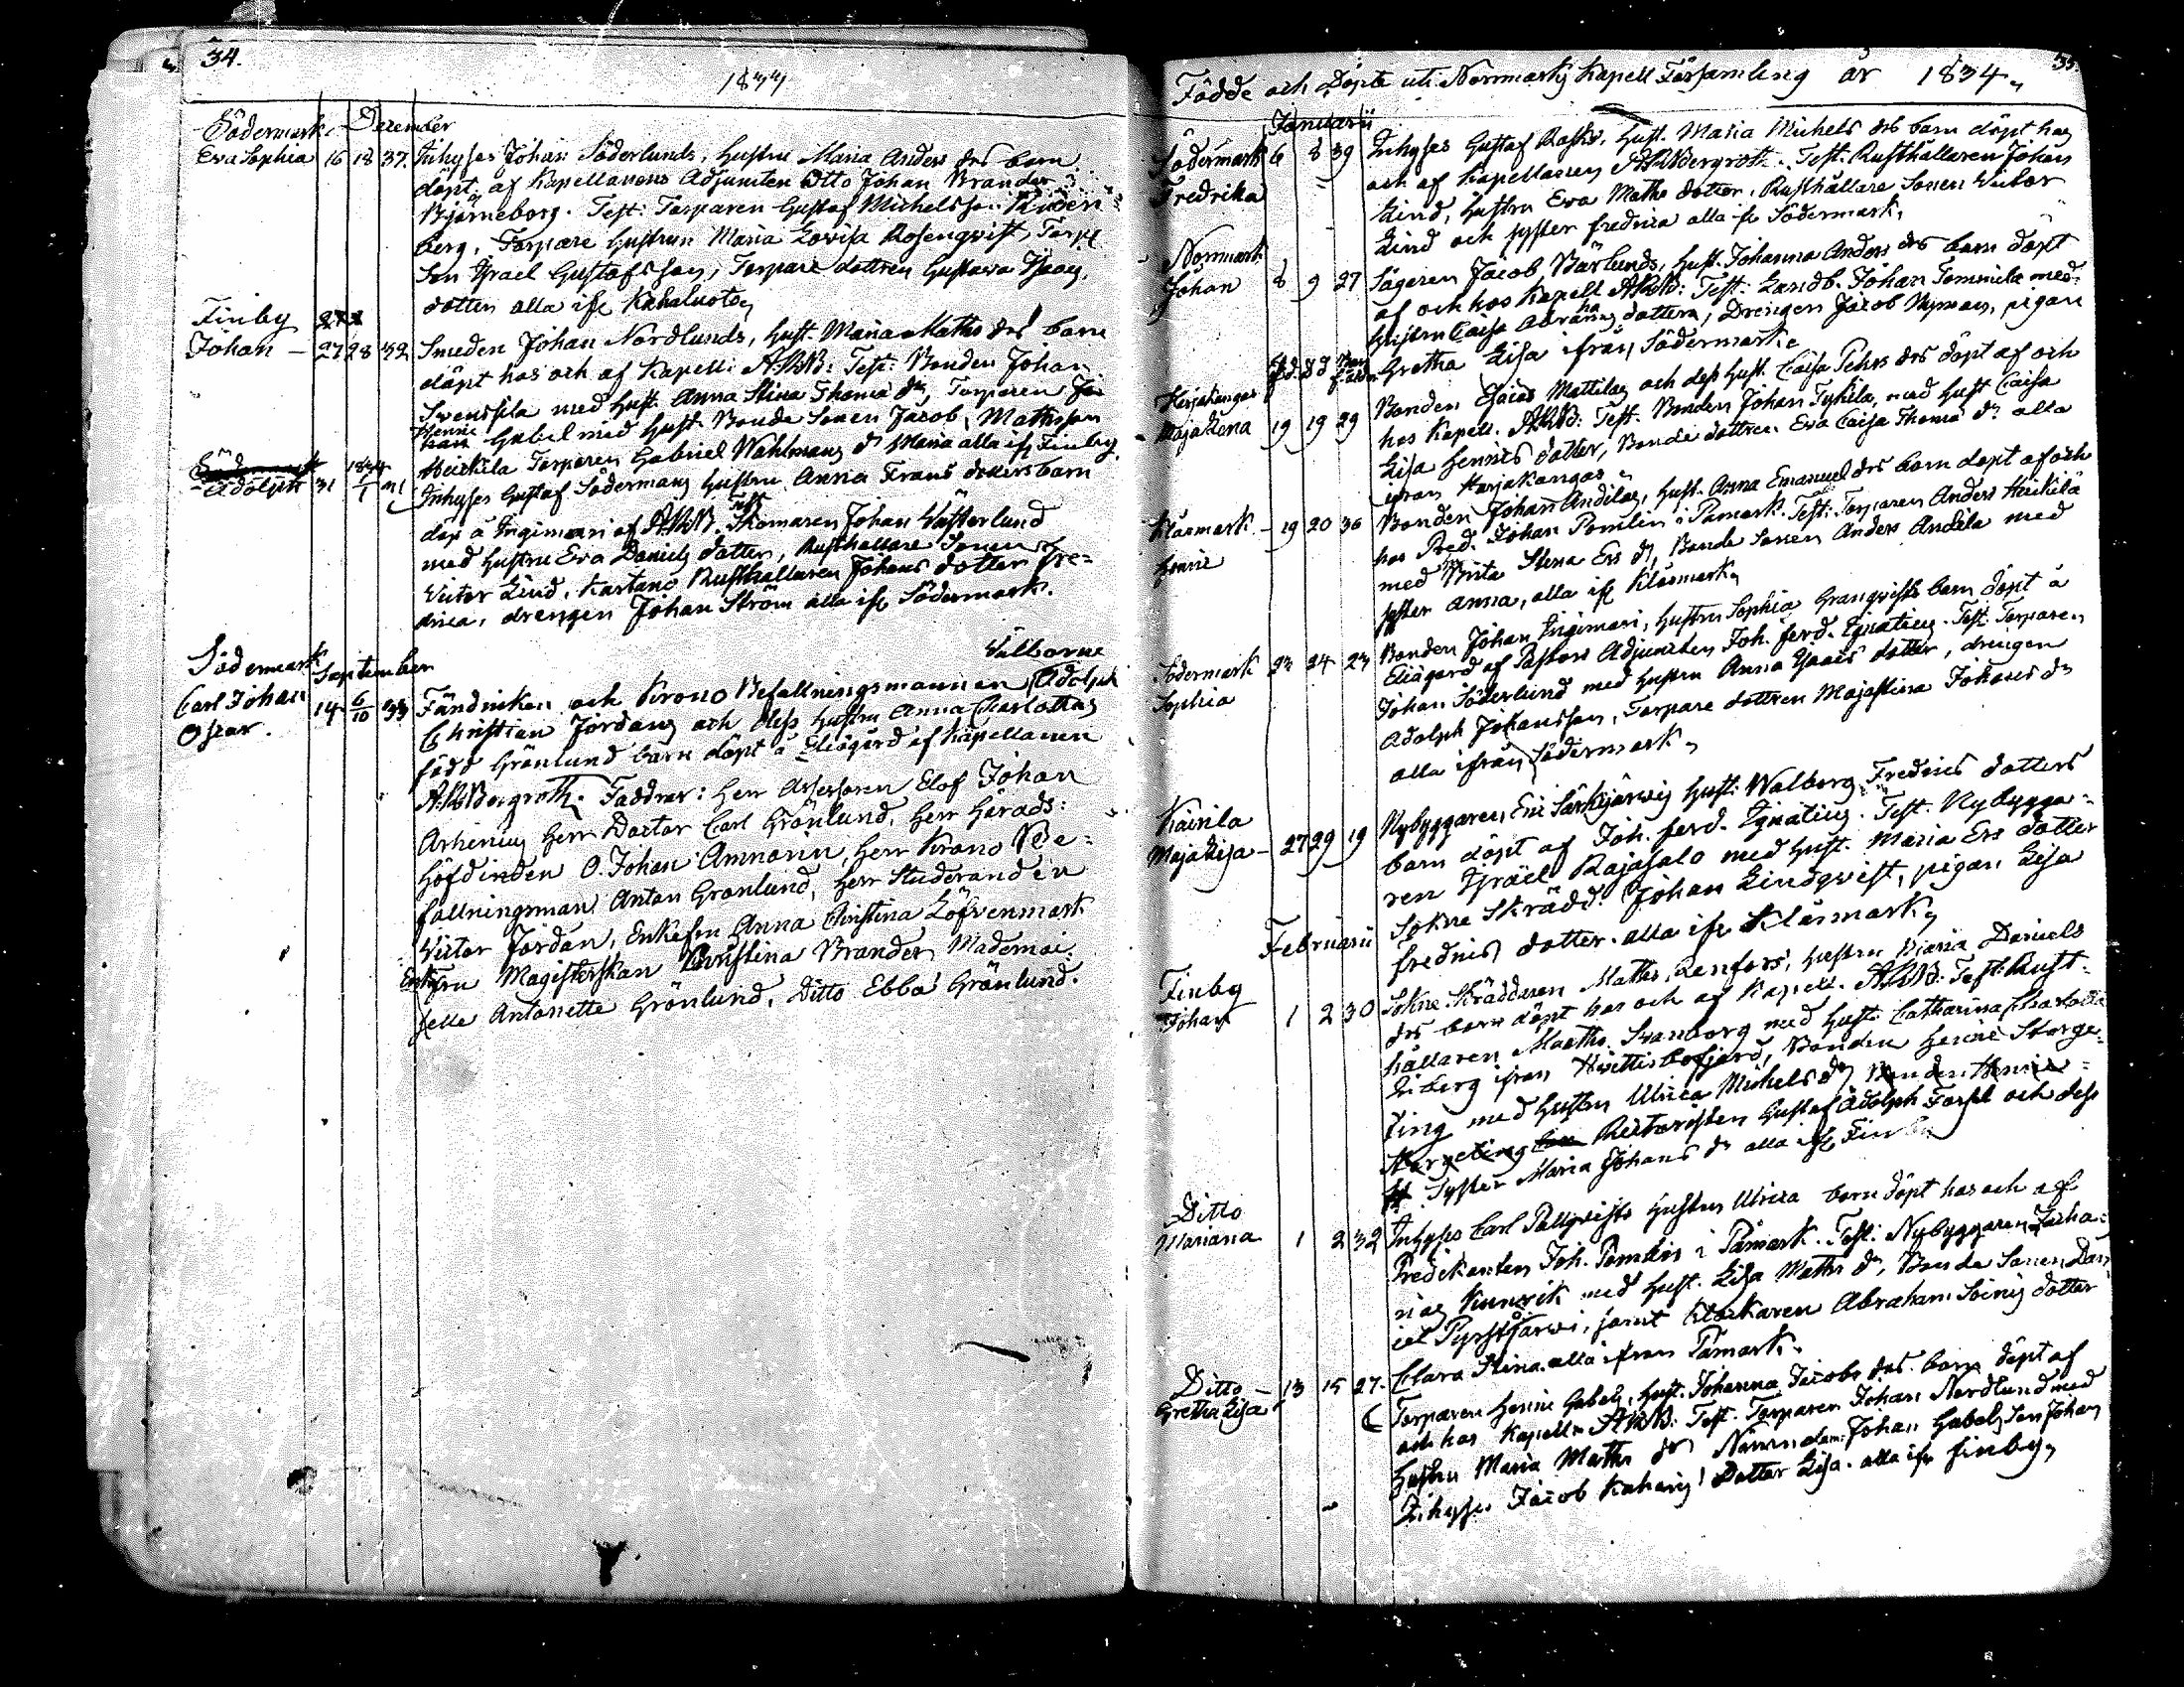 34.
1834
Södermark December
Eva Sophia 16 18 37. Inhyses Johan Söderlunds, hustru Maria Anders drs barn
döpt af Kapellanens Adjuncten Otto Johan Brander i
Björneborg. Test: Torparen Gustaf Michelsson
berg, Torpare hustrun Maria Lovisa Rosenqvist, Torp.
Son Israel Gustafsson, Torpare dottren Gustava Isaacs
dotter alla ifr Kahaluoto
Finby
Johan – 27 28 32 Smeden Johan Nordlunds, hust. Maria Maths drs barn
döpt hos och af Kapell: ABB: Test: Bonden Johan
Svenssila med hust. Anna Stina Thomæ dr, Torparen
Henric Gabriel med hust. Bonde Sonen Jacob Mathsson
Heickilä Torparen Gabriel Wahlmans dr Maria alla ifr Finby
Adolph 31 1834 1/1 Inhyses Gustaf Södermans hustru Anna Frans dotters barn
döp å Ingimari af ABB. Test Skomaren Johan Wästerlund
med hustru Eva Daniels dotter, Rusthållare Sonen
Victor Lind, Kartano Rusthållaren Johans dotter Fre=
drica, drengen Johan Ström alla ifr Södermark.
Södermark September
Wälborne
Carl Johan 14 6/10 33 Fändricken och Krono Befallningsmannen Adolph
Oscar. Christian Jordans och dess hustru Anna Charlottas
född Grönlund barn döpt å Eliägård af Kapellanen
A.B.Bergroth. Faddrar: Herr Assessoren Elof Johan
Arhenius Herr Doctor Carl Grönlund, Herr Härads:
höfdinden O. Johan Amnorin, Herr Krono Be=
fallningsman Anton Grönlund, Herr Studeranden
Victor Jordan, Enkefru Anna Christina Löfvenmark
Enkefru Magisterskan Christina Brander, Mademoi:
selle Antonette Grönlund, Ditto Ebba Grönlund.
35.
Födde och Döpte uti Normarks Kapell Församling år 1834
Januarii
Södermark 6 8 39 Inhyses Gustaf Rasks, hust. Maria Michels drs barn döpt hos
Fredrika och af Kapellanen ABBergroth. Test. Rusthållaren Johan
Lind, hustru Eva Maths dotter, Rusthållare Sonen Victor
Lind och syster Fredrica alla ifr Södermark,
Normark
Johan 8 9 27 Sågaren Jacob Bärlunds, hust. Johanna Anders drs barn döpt
af och hos Kapell ABB: Test. Landb. Johan Tommila med
hustru Caisa Abrahams dottern, Drengen Jacob Nyman, pigan
Gretha Lisa ifrån Södermark
Harjakangas
Maja Lena 19 19 29 Bonden Esaias Mattilas och dess hust. Caisa Pehrs drs döpt af och
hos Kapell. ABB: Test. Bonden Johan Tyhilä, med hust Caisa
Lisa Henrics dotter, Bonde dottren Eva Caisa Thomæ dr alla
ifrån Harjakangas
Klåsmark 19 20 36 Bonden Johan Andilas, hust. Anna Emanuel drs barn döpt af och
Henric hos Pred. Johan Pomlin i Påmark. Test: Torparen Anders Heickilä
med Brita Stena Ers dr, Bonde Sonen Anders Andila med
syster Anna, alla ifr Klåsmark,
Södermark 23 24 23 Bonden Johan Ingimari, hustru Sophia Granqvists barn döpt å
Sophia Eliägard af Pastors Adjuncten Joh. Ferd. Ignatius. Test. Torparen
Johan Söderlund med hustru Anna Isaacs dotter, drengen
Adolph Johansson, Torpare dottren Majastina Johans dr
alla ifrån Södermark,
Kairila
Maja Lisa – 27 29 19 Nybyggaren Eric Särkijärvis hust: Walborg Fredrics dotters
barn döpt af Joh. Ferd. Ignatius. Test. Nybygga=
ren Israel Rajasalo med hust. Maria Ers dotter
Sokne Skrädd: Johan Lindqvist, pigan Lisa
Fredrics dotter alla ifr Klåsmark,
Februarii
Finby
Johan 1 2 30 Sokne Skräddaren Maths Renfors, hustru Maria Daniels
drs barn döpt hos och af Kapell. ABB: Test: Rust=
hållaren Maths Svanborg med hust. Catharina Charlotta
Liberg ifrån Hvittisbofjärd, Bonden Henric Storge=
ting med hustru Ulrica Michels dr Bonden Henric
Norgeting Gustaf Adolph Forss och dess
syster Maria Johans dr alla ifr Finby
Ditto
Mariana 1 2 32 Inhyses Carl Pallqvists hustru Ulrica barn döpt hos och af
Predikanten Joh. Pomlin i Påmark. Test: Nybyggaren Zacha:
rias Kunsik med hust. Lisa Maths dr, Bonde Sonen Dan
iel Pyrstjärvi, jemt Klockaren Abraham Soinis dotter
Clara Stina alla ifrån Påmark.
Ditto – 13 15 27. Torparen Henric Gabels, hust. Johanna Jacobs drs barn döpt af
Gretha Lisa och hos Kapell. ABB: Test. Torparen Johan Nordlund med
hustru Maria Maths dr Nämndem: Johan Gabels Son Johan
Inhyses Jacob Kaharis Dotter Lisa alla ifr Finby,